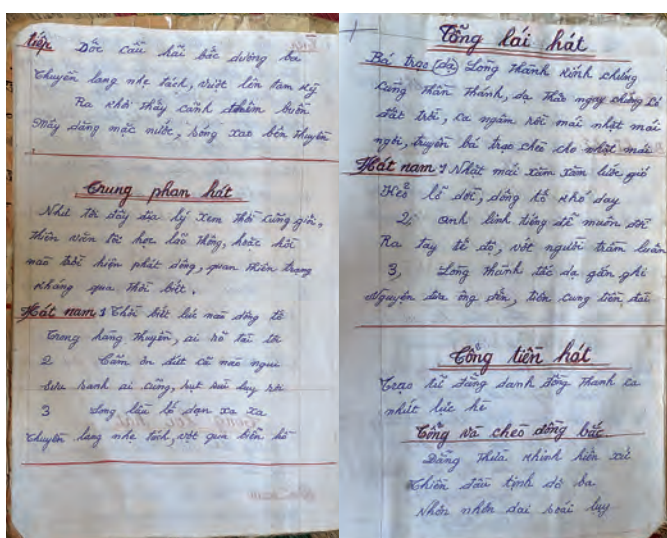 tiếp Dốc cầu hải bắc dương ba
Thuyền lang nhẹ tách, vượt lên
Ra khơi thấy cảnh thêm buồn
Mây dăng mặc nước, sóng xao bên thuyền
Trung phan hát
Như tôi đây địa lý xem thời cũng giỏi,
thiên văn tôi học lão thông, hoặc hồi
nào trời hiện phát động, quan thiên trạng
không qua thời biết.
Hát nam 1 Thời biết lúc nào động tố
Trong hàng thuyền, ai rõ tài tôi
2 Cảm ơn đức cả nào nguôi
sưu sanh ai cũng, hụt lui luy rơi
3 Long lầu lố dạn xa xa
Thuyền lang nhẹ tách, vượt qua biển hồ
Tổng lái hát
Bá trạo (dạ) Long thành kính chúng
cùng thần thánh, dạ thảo ngay chứng
đất trời, ca ngâm rồi mái nhặt mái
ngơi, truyền bá trạo chèo cho nhặt mái
Hát nam 1 Nhặt mái xăm xăm lước gió
Kẻo lố dời, dông tố khó day
2, anh linh tiếng để muôn đời
Ra tay tế độ, vớt người trầm luân
3, Long thành tấc dạ gắn ghi
Nguyện đưa ông đến, tiên cung tiên đài
Tổng tiền hát
Trạo tử đẳng danh đồng thanh ca
nhứt lúc hè
Tổng và chèo đồng bắc
Dăng thừa khinh hiên xứ
Thiên đầu tịnh độ ba
Nhơn nhơn dai hoài luy